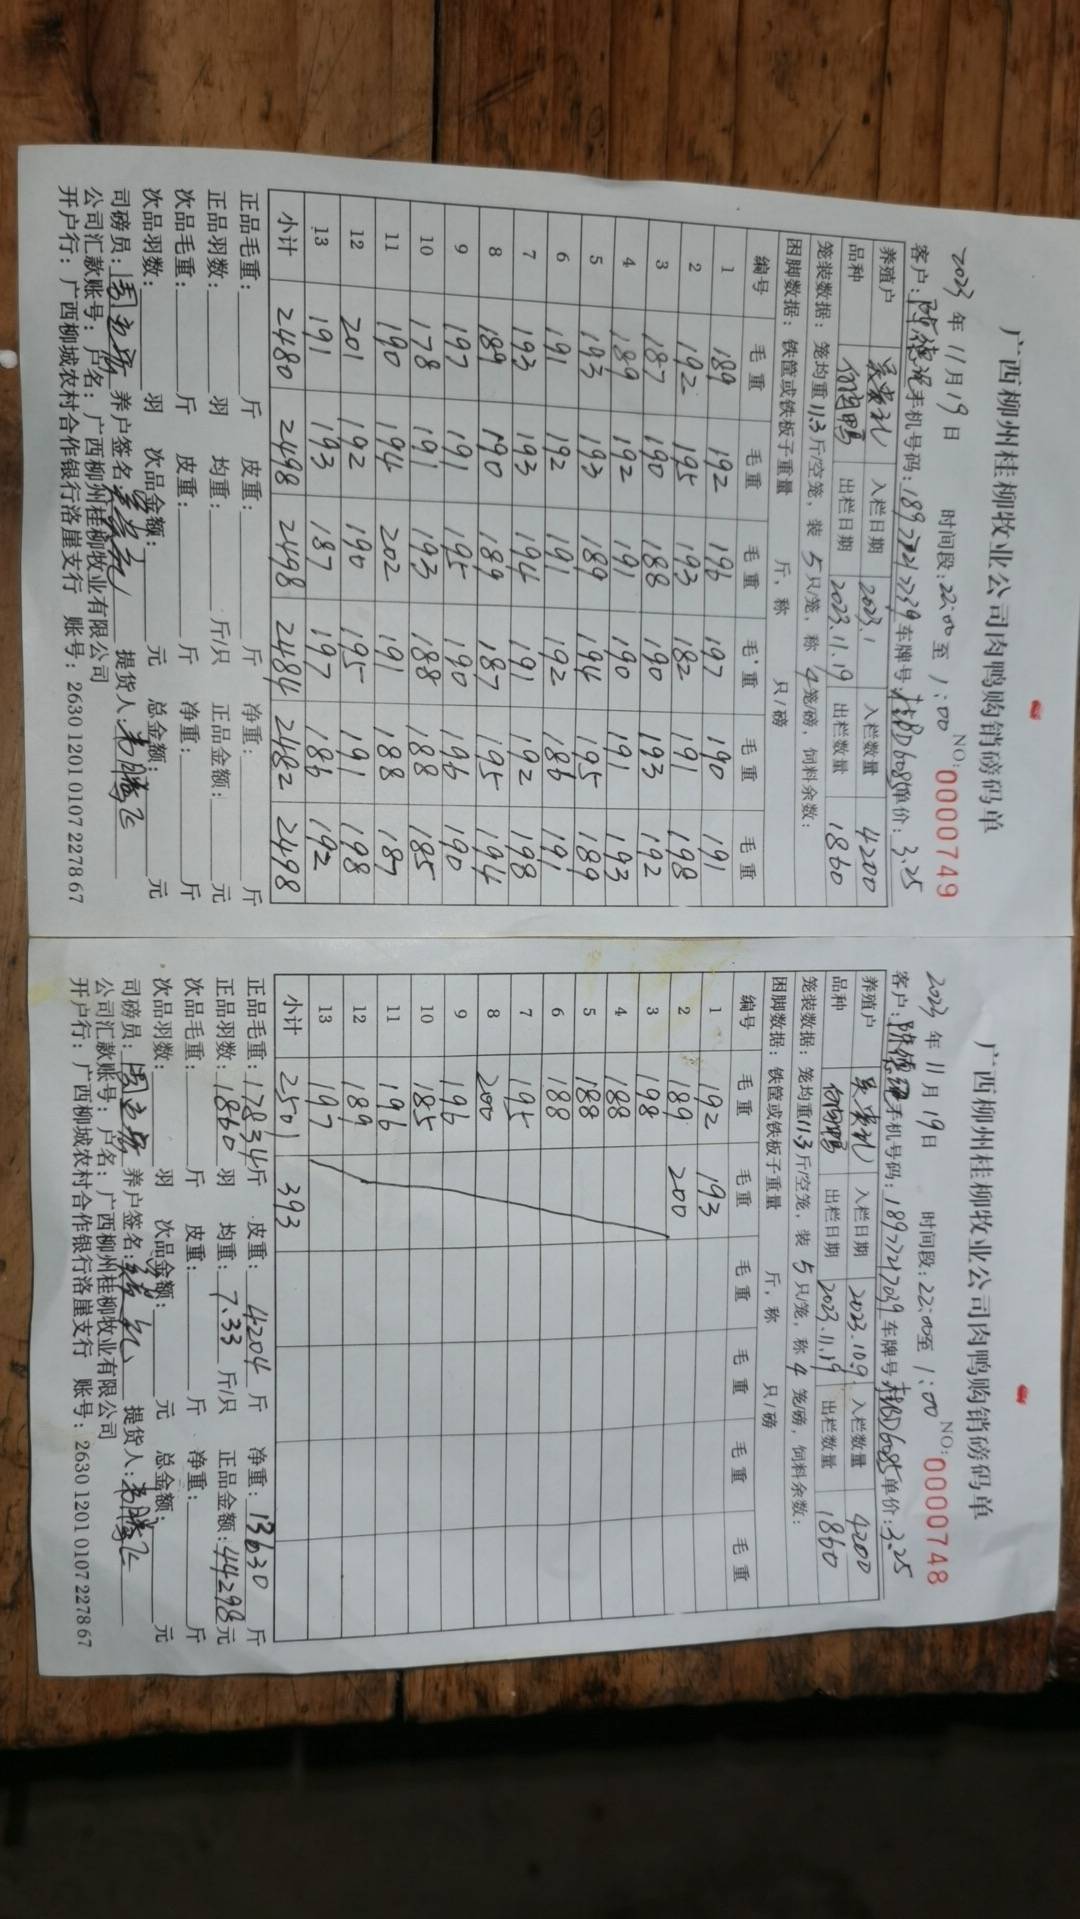 广西柳州桂柳牧业公司肉鸭购销磅码单
NO: 0000749
2023 年 11 月 19 日 时间段: 22:00 至 1:00
客户: 陈德 手机号码: 车牌号 桂BD6085 单价: 3.25
养殖户 入栏日期 2023.1 入栏数量 4200
品种 出栏日期 2023.11.19 出栏数量 1860
笼装数据: 笼均重 11.3 斤/空笼, 装 5 只/笼, 称 4 笼/磅, 饲料余数:
困脚数据: 铁筐或铁板子重量 斤, 称 只/磅
编号 毛重 毛重 毛重 毛重 毛重 毛重
1 189 192 196 197 190 191
2 192 195 193 182 191 198
3 187 190 188 190 193 192
4 189 192 191 190 191 193
5 193 193 189 194 195 189
6 191 192 191 192 186 191
7 193 193 194 191 192 198
8 189 190 189 187 195 194
9 197 191 195 190 196 190
10 178 191 193 188 188 185
11 190 194 202 191 188 187
12 201 192 190 195 191 198
13 191 193 187 197 186 192
小计 2480 2498 2498 2484 2482 2498
正品毛重: 斤 皮重: 斤 净重: 斤
正品羽数: 羽 均重: 斤/只 正品金额: 元
次品毛重: 斤 皮重: 斤 净重: 斤
次品羽数: 羽 次品金额: 元 总金额: 元
司磅员: 养户签名: 提货人:
公司汇款账号: 户名: 广西柳州桂柳牧业有限公司
开户行: 广西柳城农村合作银行洛崖支行 账号: 2630 1201 0107 2278 67
广西柳州桂柳牧业公司肉鸭购销磅码单
NO: 0000748
2023 年 11 月 19 日 时间段: 22:00 至 1:00
客户: 陈德 手机号码: 车牌号 桂BD6085 单价: 3.25
养殖户 入栏日期 2023.10.9 入栏数量 4200
品种 出栏日期 2023.11.19 出栏数量 1860
笼装数据: 笼均重 11.3 斤/空笼, 装 5 只/笼, 称 4 笼/磅, 饲料余数:
困脚数据: 铁筐或铁板子重量 斤, 称 只/磅
编号 毛重 毛重 毛重 毛重 毛重 毛重
1 192 193
2 189 200
3 198
4 188
5 188
6 188
7 195
8 200
9 196
10 185
11 196
12 189
13 197
小计 2501 393
正品毛重: 17834 斤 皮重: 4204 斤 净重: 13630 斤
正品羽数: 1860 羽 均重: 7.33 斤/只 正品金额: 44298 元
次品毛重: 斤 皮重: 斤 净重: 斤
次品羽数: 羽 次品金额: 元 总金额: 元
司磅员: 养户签名: 提货人:
公司汇款账号: 户名: 广西柳州桂柳牧业有限公司
开户行: 广西柳城农村合作银行洛崖支行 账号: 2630 1201 0107 2278 67